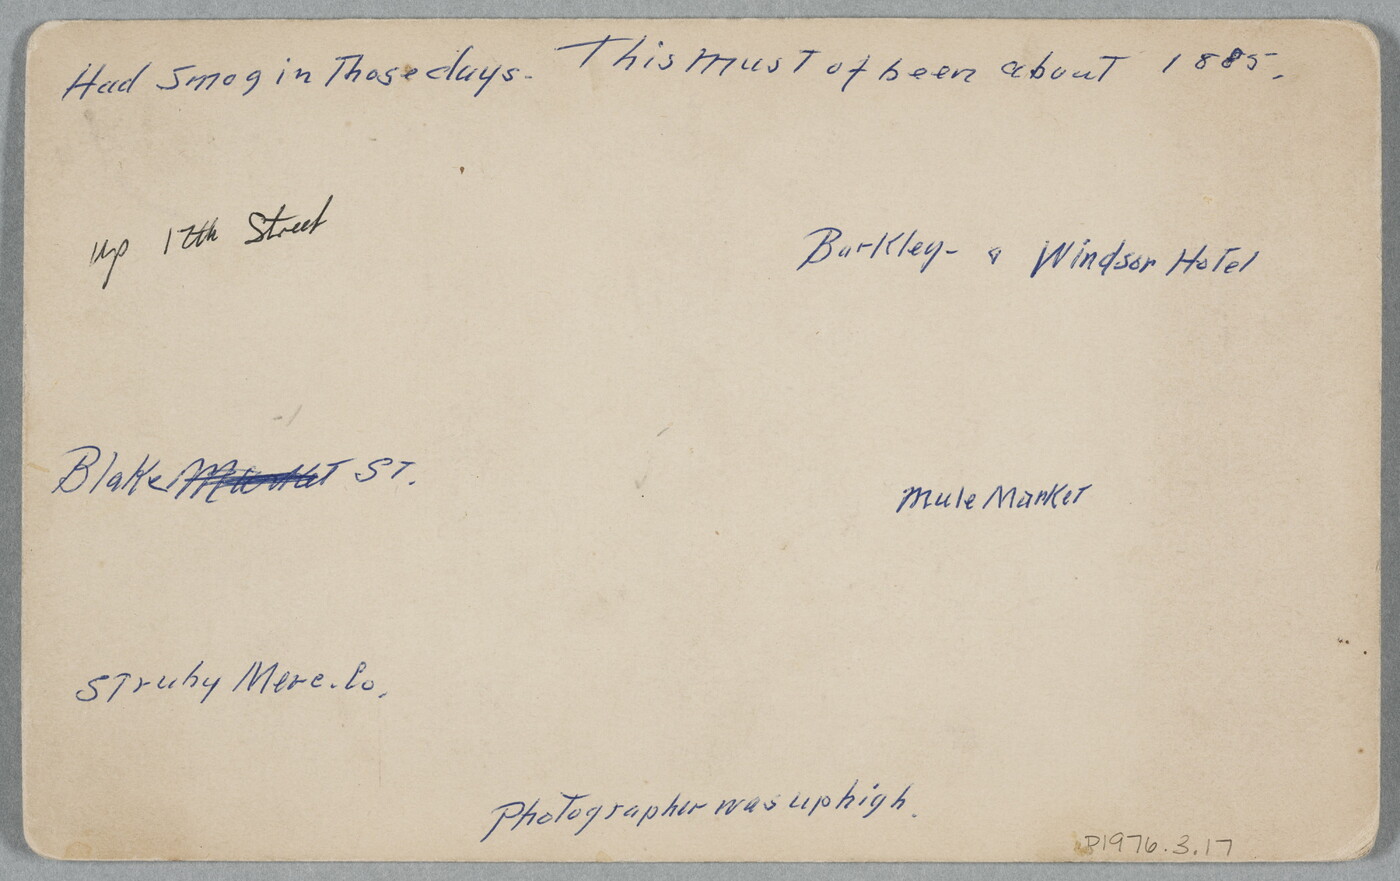 Had Smog in Those days. This must of been about 1885.
up 17th Street
Barkley - & Windsor Hotel
Blake Market St.
Mule Market
Struby Merc. Co.
Photographer was up high.
P1976.3.17